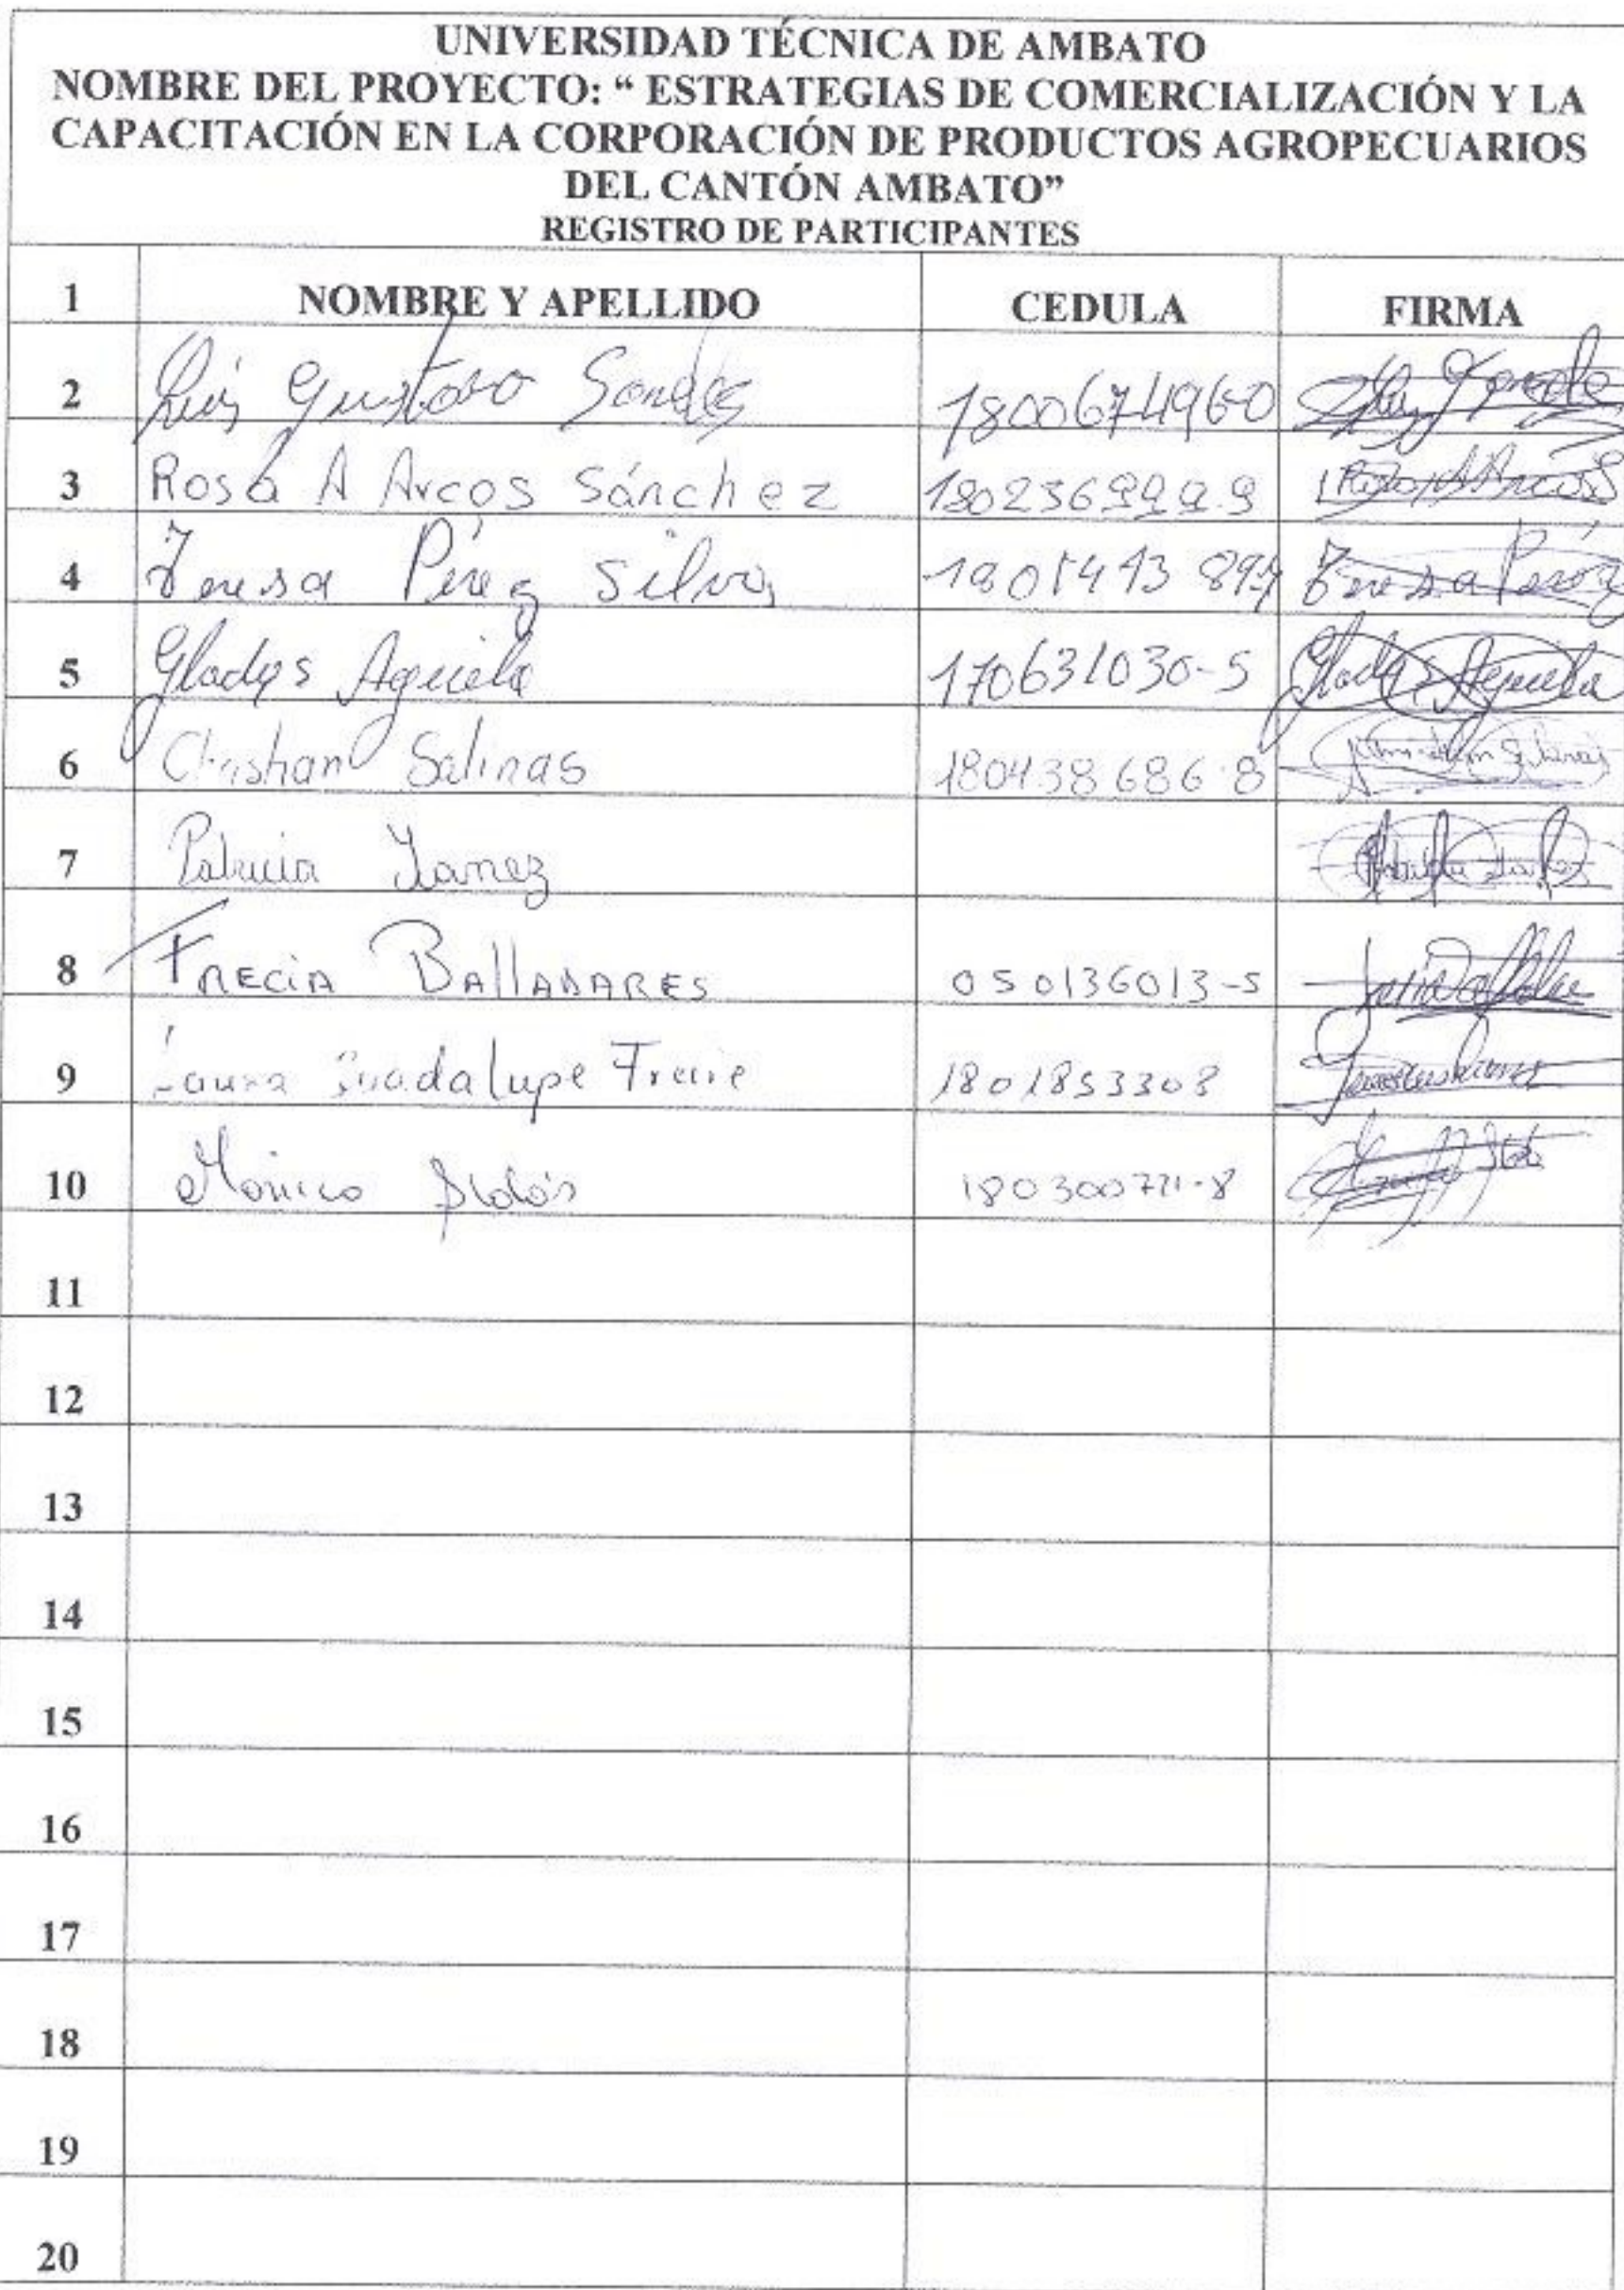 UNIVERSIDAD TÉCNICA DE AMBATO
NOMBRE DEL PROYECTO: “ ESTRATEGIAS DE COMERCIALIZACIÓN Y LA
CAPACITACIÓN EN LA CORPORACIÓN DE PRODUCTOS AGROPECUARIOS
DEL CANTÓN AMBATO”
REGISTRO DE PARTICIPANTES
1 NOMBRE Y APELLIDO CEDULA FIRMA
2 Luis Gustavo 180067496-0
3 Rosa A Arcos Sánchez
4 Teresa Pérez Silva Teresa Pérez
5 Gladys 170631030-5 Gladys
6 Christian Salinas 180438686-8
7 Patricia Yanez
8 FRECIA BALLADARES 050136013-5
9 Laura Guadalupe Freire 1801853308
10 Mónica
11
12
13
14
15
16
17
18
19
20